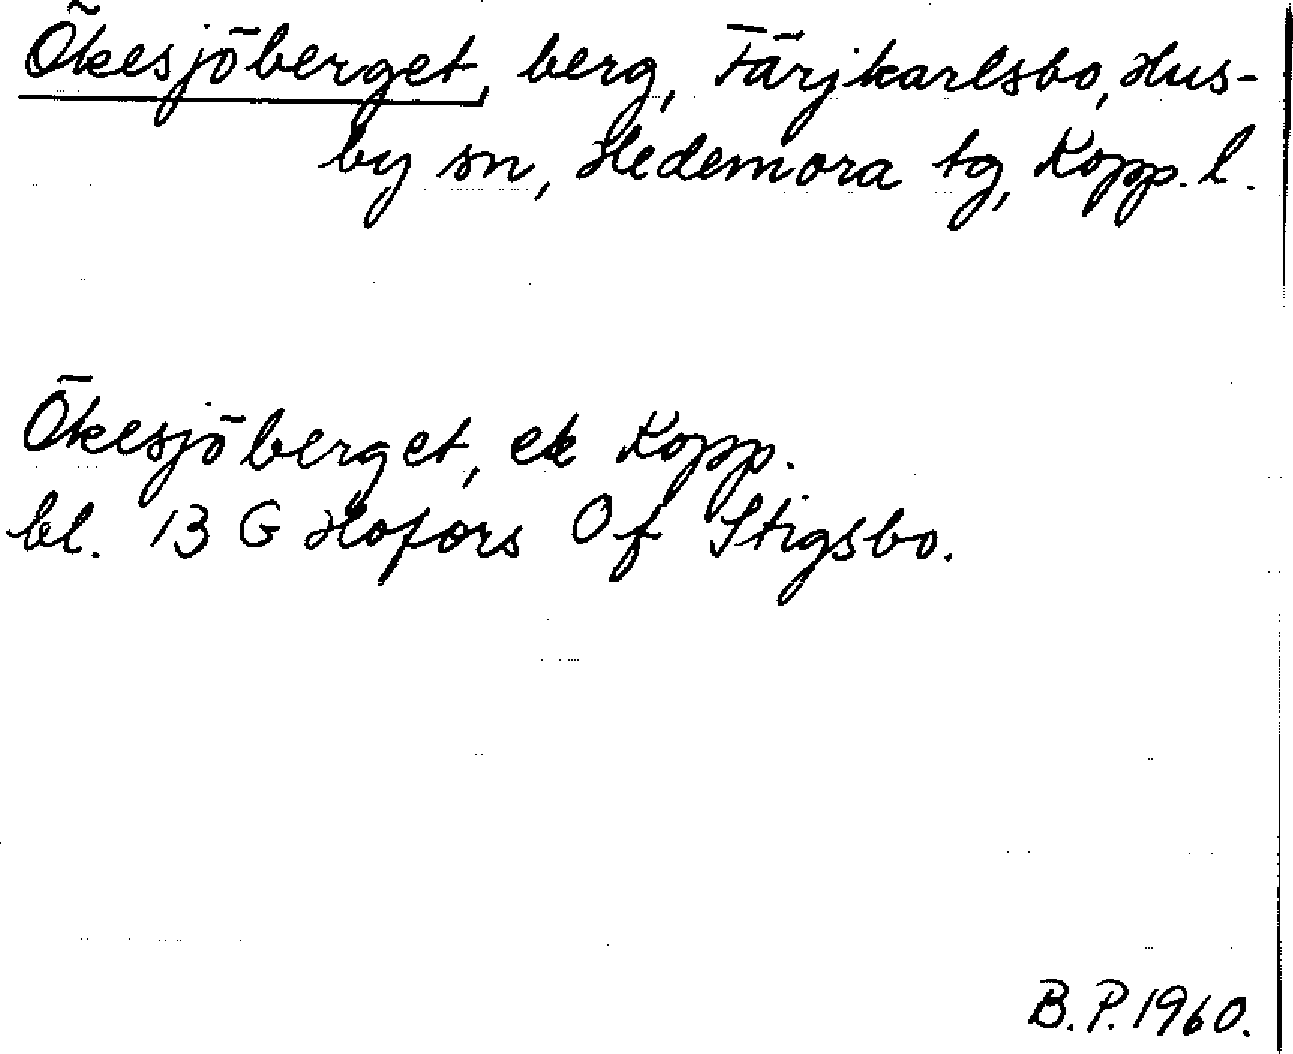 Ökesjöberget, berg, Färjkarlsbo, Hus-
by sn, Hedemora tg, Kopp. l.
Ökesjöberget, ek Kopp.
bl. 13 G Hofors 0 f Stigsbo.
B.P. 1960.